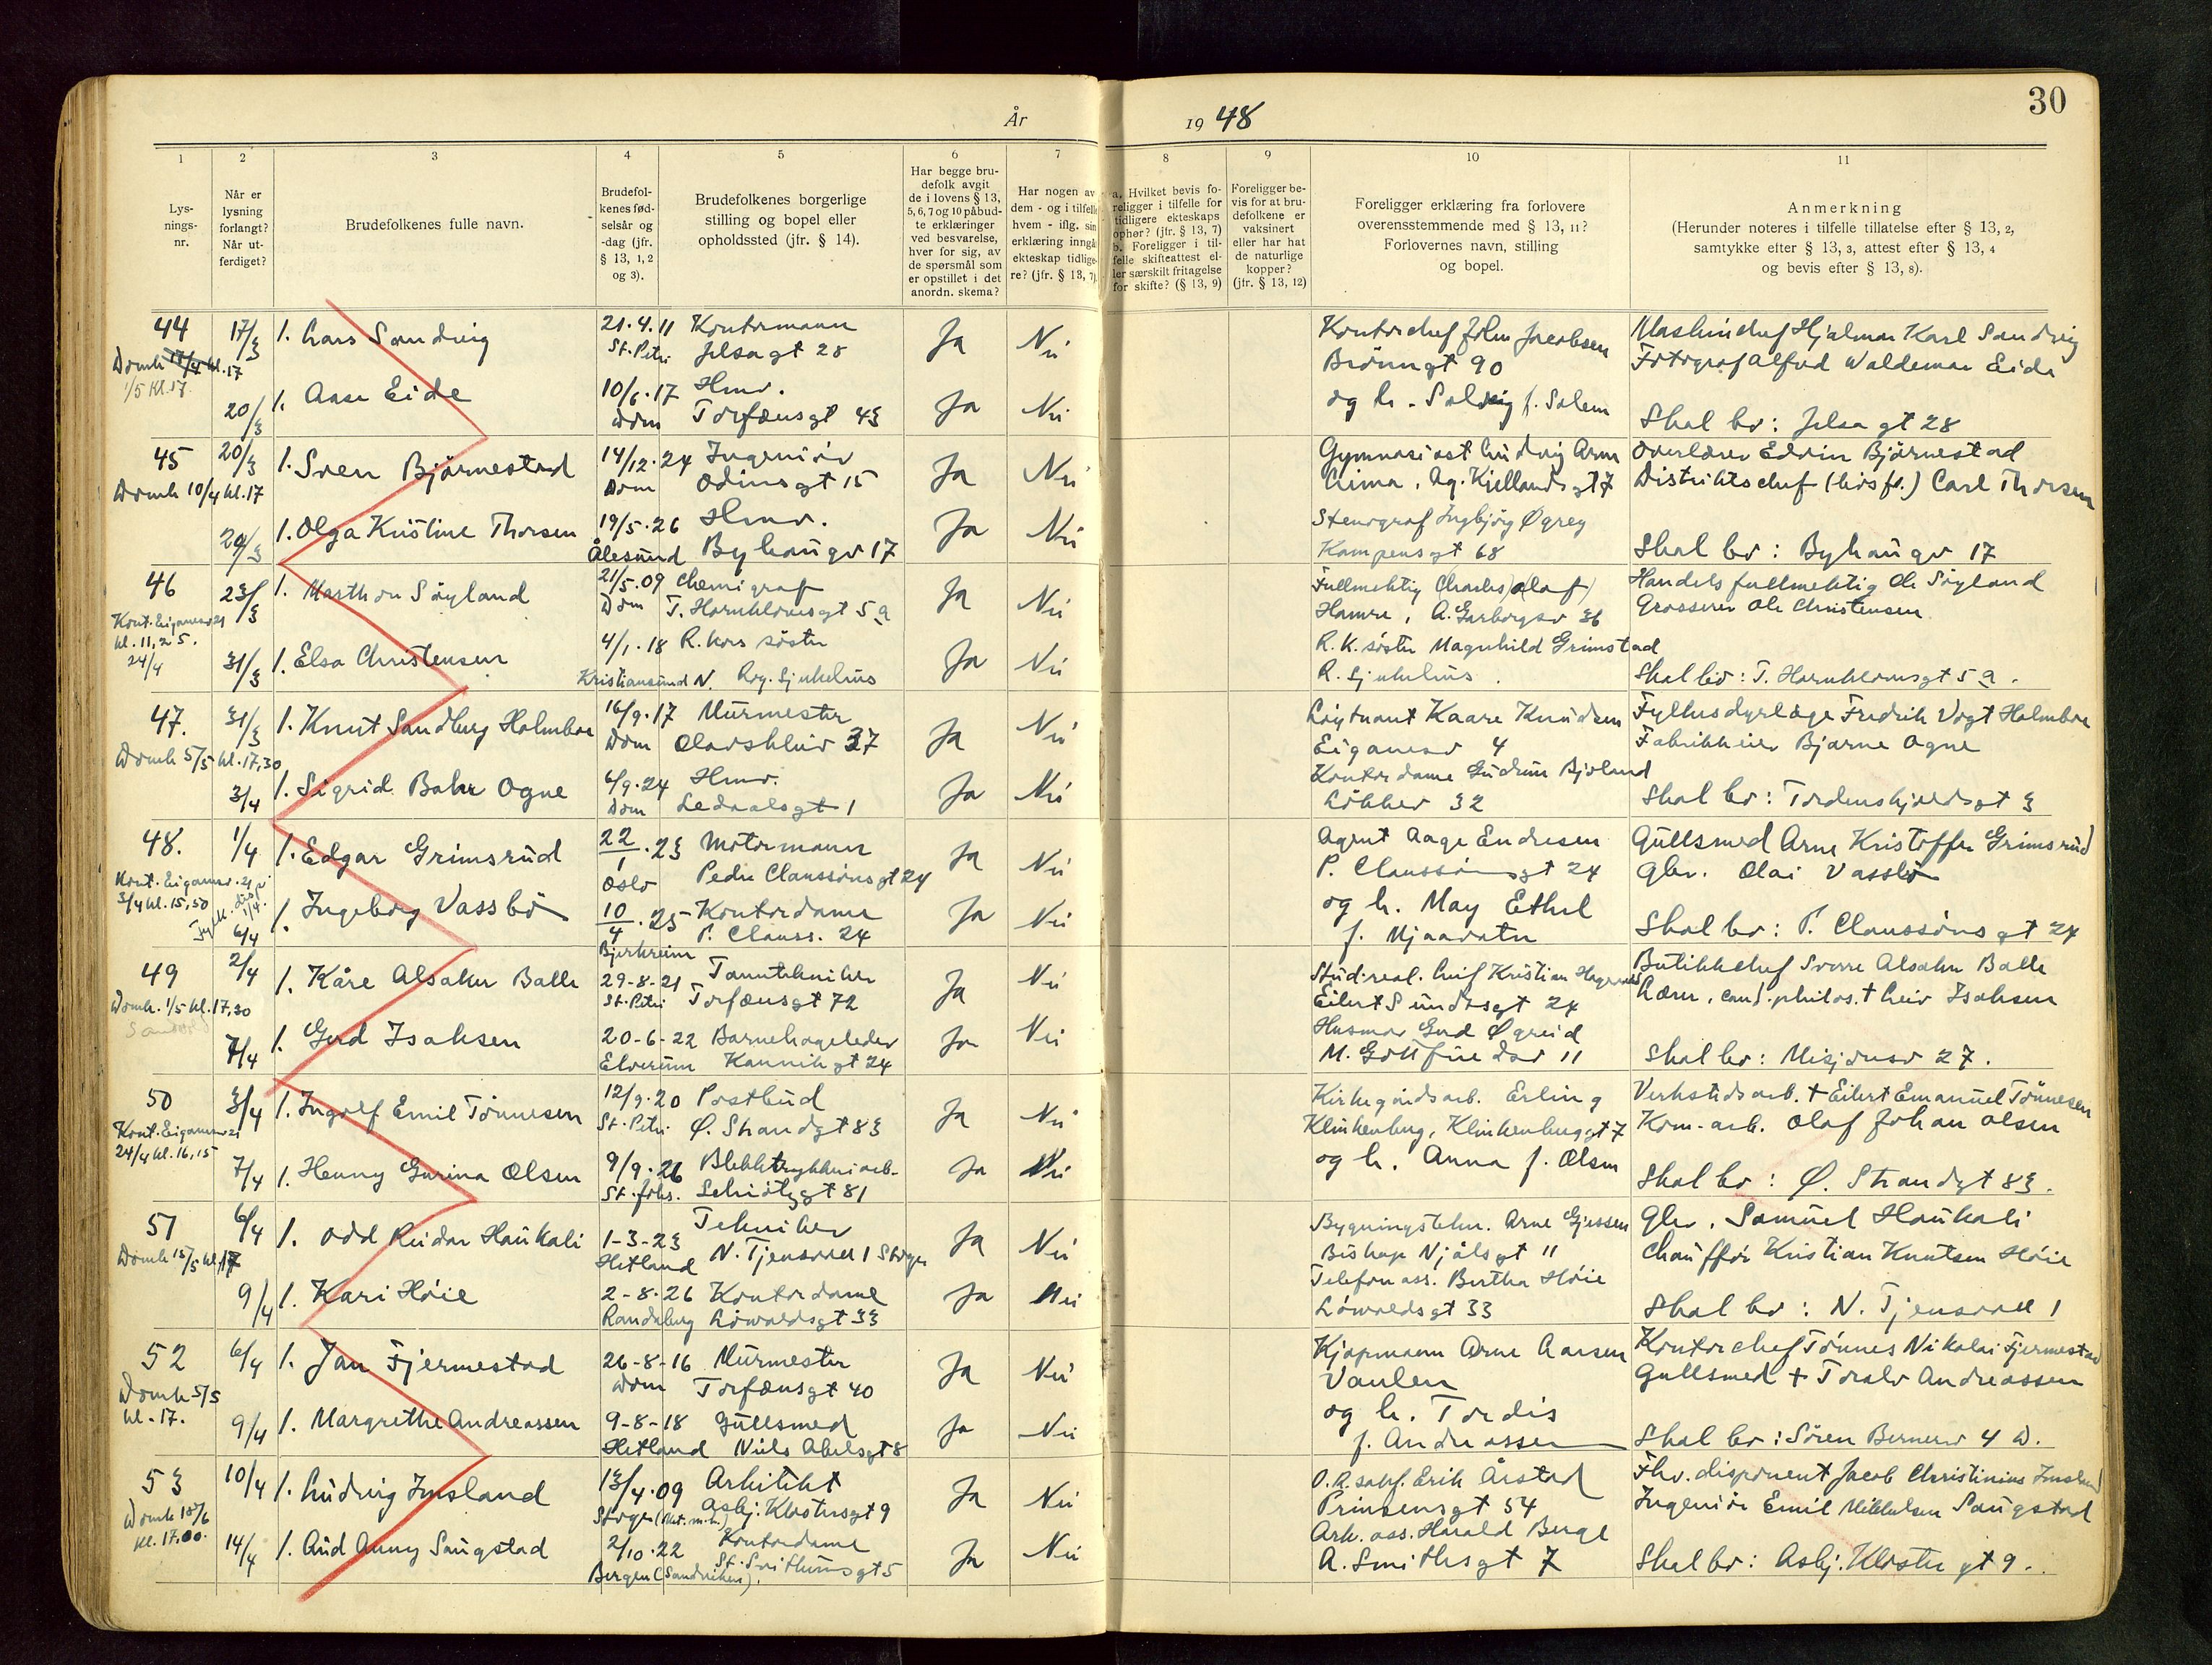 År
19 48
30
1
2
3
4
5
6
7
8
9
10
11
Lys-
nings-
nr.
Når er
lysning
forlangt?
Når ut-
ferdiget?
Brudefolkenes fulle navn.
Brudefol-
kenes fød-
selsår og
-dag (jfr.
§ 13, 1, 2
og 3).
Brudefolkenes borgerlige
stilling og bopel eller
opholdssted (jfr. § 14).
Har begge bru-
defolk avgit
de i lovens § 13,
5, 6, 7 og 10 påbud-
te erklæringer
ved besvarelse,
hver for sig, av
de spørsmål som
er opstillet i det
anordn. skema?
Har nogen av
dem - og i tilfelle
hvem - iflg. sin
erklæring inngå
ekteskap tidlige-
re? (jfr. § 13, 7).
a. Hvilket bevis fo-
religger i tilfelle for
tidligere ekteskaps
ophør? (jfr. § 13, 7)
b. Foreligger i til-
felle skifteattest el-
ler særskilt fritagelse
for skifte? (§ 13, 9)
Foreligger be-
vis for at bru-
defolkene er
vaksinert
eller har hat
de naturlige
kopper?
(jfr. § 13, 12)
Foreligger erklæring fra forlovere
overensstemmende med § 13, 11?
Forlovernes navn, stilling
og bopel.
Anmerkning
(Herunder noteres i tilfelle tillatelse efter § 13, 2,
samtykke efter § 13, 3, attest efter § 13, 4
og bevis efter § 13, 8).
44 17/3 1. Lars Sandvig 21.4.11 Kontormann Ja Nei Kontorchef John Jacobsen Maskinchef Hjalmar Karl Sandvig
Domk kl. 17 St. Petri Jelsagt 28 Brönngt 90 Fotograf Alfred Waldemar Eide
1/5 kl. 17.
20/3 1. Aase Eide 10/6.17 Hmv. Ja Nei og h. Solveig f. Solem
Dom Torfæusgt 43 Skal bo: Jelsagt 28
45 20/3 1. Sven Bjørnestad 14/12.24 Ingeniör Ja Nei Gymnasiast Ludvig Arne Overlærer Edvin Bjørnestad
Domk 10/4 kl. 17 Dom Odinsgt 15 Lima, Ag. Kjellandsgt 7 Distriktschef (hos fr.) Carl Thorsen
1. Olga Kristine Thorsen 19/5.26 Hmv. Ja Nei Stenograf Ingbjörg Øgrey
Ålesund Byhaugv 17 Kampensgt 68 Skal bo: Byhaugv 17
46 23/3 1. Marthon Söyland 21/5.09 Chemigraf Ja Nei Fullmektig Charles Olaf Handelsfullmektig Ole Söyland
Kont. Eiganesv 21 Dom T. Hornklovesgt 5a Hamre, A. Garborgsv 36 Grosserer Ole Christensen
kl. 11, 25.
24/4 31/3 1. Elsa Christensen 4/1.18 R.kors söster Ja Nei R.K. söster Magnhild Grimstad
Kristiansund N. Rog. Sjukehus R. Sjukehus. Skal bo: T. Hornklovesgt 5a.
47. 31/3 1. Knut Sandberg Holmboe 16/9.17 Murmester Ja Nei Löytnant Kaare Knudsen Fylkesdyrlæge Fredrik Vogt Holmboe
Domk 5/5 kl. 17,30 Dom Olavskleiv 37 Eiganesv 4 Fabrikkeier Bjarne Ogne
3/4 1. Sigrid Bahr Ogne 6/9.24 Hmv. Ja Nei Kontordame Gudrun Bjoland
Dom Ledaalsgt 1 Lökkev 32 Skal bo: Tordenskjoldsgt 3
48. 1/4 1. Edgar Grimsrud 22/1.23 Motormann Ja Nei Agent Aage Endresen Gullsmed Arne Kristoffer Grimsrud
Kont. Eiganesv. 21 Oslo Peder Claussönsgt 24 P. Claussönsgt 24 Gbr. Olai Vassbö
3/4 kl. 15,50
6/4 1. Ingeborg Vassbö 10/4.25 Kontordame Ja Nei og h. May Ethel
Bjerkreim P. Clauss. 24 f. Mjaavatn Skal bo: P. Claussönsgt 24
49 2/4 1. Kåre Alsaker Balle 29-8-21 Tanntekniker Ja Nei Stud.real. Leif Kristian Butikkchef Sverre Alsaker Balle
Domk. 1/5 kl. 17,30 St. Petri Torfæusgt 72 Eilert Sundtsgt 24 Lærer, cand. philos. † Leiv Isaksen
7/4 1. Gerd Isaksen 20-6-22 Barnehageleder Ja Nei Husmor Gerd Øgreid
Elverum Kannikgt 24 M. Golffinedsv 11 Skal bo: Misjonsv 27.
50 3/4 1. Ingolf Emil Tönnesen 12/9.20 Postbud Ja Nei Kirkegårdsarb. Erling Verkstedsarb. † Eilert Emanuel Tönnesen
Kont. Eiganesv 21 St. Petri Ø. Strandgt 83 Klinkenberg, Klinkenberggt 7 Kom-arb. Olaf Johan Olsen
24/4 kl. 16,15
7/4 1. Henny Gurina Olsen 9/9.26 Blikktrykkeriarb. Ja Nei og h. Anna f. Olsen
St. Johs. Schiötzgt 81 Skal bo: Ø. Strandgt 83.
51 6/4 1. Odd Reidar Haukali 1-3-23 Tekniker Ja Nei Bygningstekn. Arne Gjessen Gbr. Samuel Haukali
Domk 15/5 kl. 17 Hetland N. Tjensvoll 1 Bishop Njålsgt 11 Chaufför Kristian Knutsen Höie
9/4 1. Kari Höie 2-8-26 Kontordame Ja Nei Telefonass. Bertha Höie
Randaberg Löwoldsgt 33 Löwoldsgt 33 Skal bo: N. Tjensvoll 1
52 6/4 1. Jan Fjermestad 26-8-16 Murmester Ja Nei Kjøpmann Arne Aarsen Kontorchef Tönnes Nikolai Fjermestad
Domk 5/5 Dom Torfæusgt 40 Vaulen Gullsmed † Toralv Andreassen
kl. 17.
9/4 1. Margrethe Andreassen 9-8-18 Gullsmed Ja Nei og h. Tordis
Hetland Niels Abelsgt 8 f. Andreassen Skal bo: Sören Bernerv 4 D.
53 10/4 1. Ludvig Imsland 13/4.09 Arkitekt Ja Nei O.R.sakf. Erik Årstad Fhv. disponent Jacob Christinius Imsland
Domk 18/6 Asbj. Klostersgt 9 Prinsensgt 54 Ingeniör Emil Mikkelsen Saugstad
kl. 17.00.
14/4 1. Aud Anny Saugstad 2/10.22 Kontordame Ja Nei Ark. ass. Harald Berge
Bergen (Sandviken). St. Svithunsgt 5 A. Smithsgt 7 Skal bo: Asbj. Kloster gt 9.